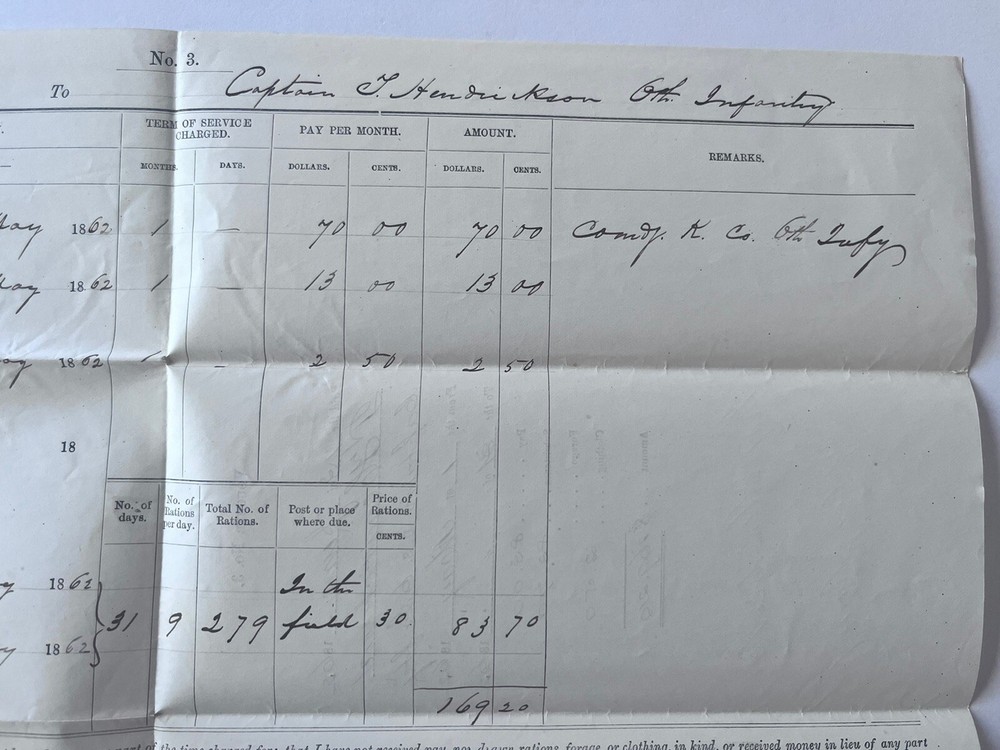 No. 3.
To Captain T. Hendrickson 6th. Infantry
TERM OF SERVICE CHARGED. PAY PER MONTH. AMOUNT. REMARKS.
MONTHS. DAYS. DOLLARS. CENTS. DOLLARS. CENTS.
1862 1 — 70 00 70 00 Comdg. K. Co. 6th Infy
1862 1 — 13 00 13 00
1862 1 — 2 50 2 50
18
No. of days. No. of Rations per day. Total No. of Rations. Post or place where due. Price of Rations.
CENTS.
1862 In the
31 9 279 field 30 83 70
1862
169 20
of the time charged for; that I have not received pay, nor drawn rations, forage, or clothing, in kind, or received money in lieu of any part